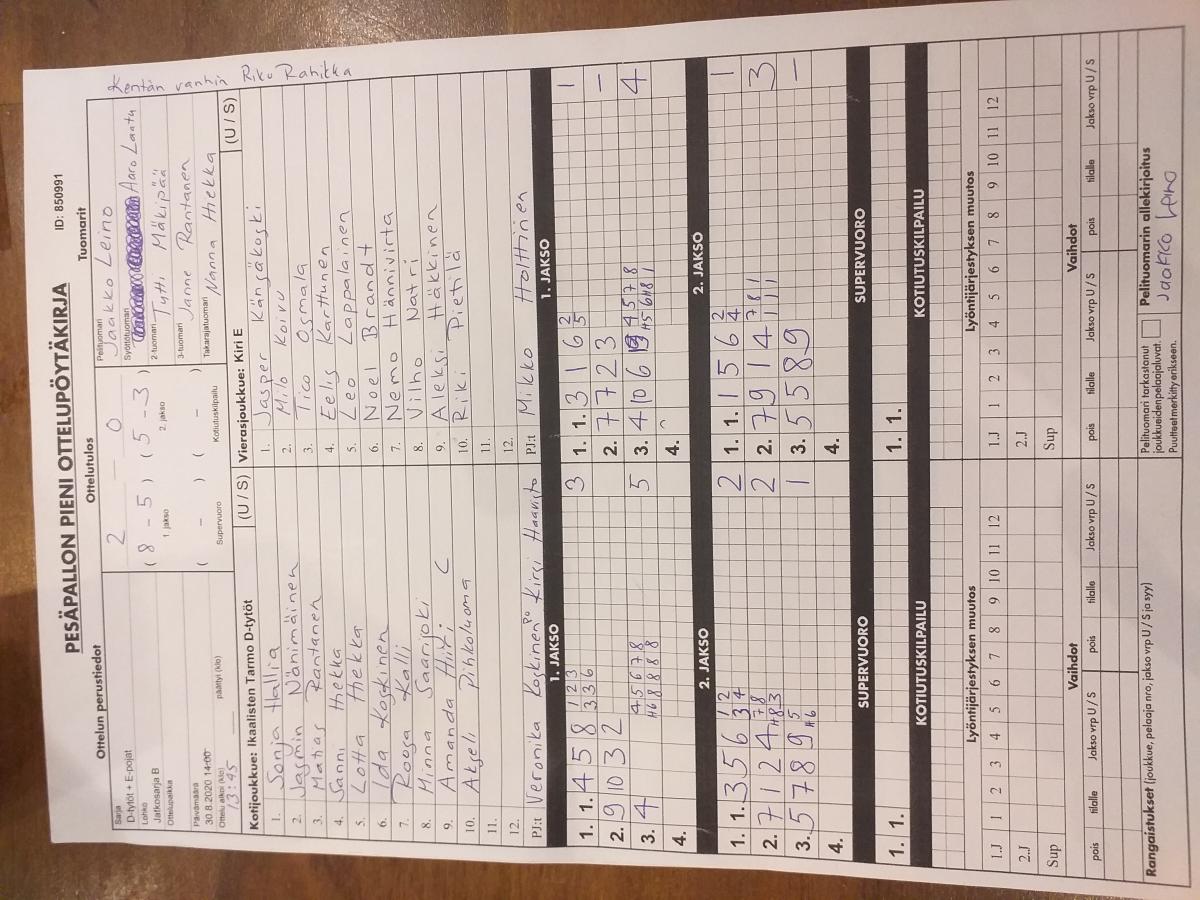 PESÄPALLON PIENI OTTELUPÖYTÄKIRJA
ID: 850991
Ottelun perustiedot
Sarja
D-tytöt + E-pojat
Lohko
Jatkosarja B
Ottelupaikka
Päivämäärä
30.8.2020 14:00
Ottelu alkoi (klo) päättyi (klo)
13:45
Ottelutulos
2 0
( 8 - 5 ) ( 5 - 3 )
1. jakso 2. jakso
( - ) ( - )
Supervuoro Kotiutuskilpailu
Tuomarit
Kentän vanhin Riku Rahikka
Pelituomari
Jaakko Leino
Syöttötuomari
Aaro Laatu
2-tuomari
Tytti Mäkipää
3-tuomari
Janne Rantanen
Takarajatuomari
Nanna Hiekka
Kotijoukkue: Ikaalisten Tarmo D-tytöt (U / S)
1. Sonja Hallia
2. Jasmin Nänimäinen
3. Matias Rantanen
4. Sanni Hiekka
5. Lotta Hiekka
6. Ida Koskinen
7. Roosa Kalli
8. Minna Saarijoki
9. Amanda Hiiri C
10. Akseli Pihkoluoma
11.
12.
PJ:t Veronika Koskinen PJ Kirsi Haavisto
Vierasjoukkue: Kiri E (U / S)
1. Jasper Känsäkoski
2. Milo Koivu
3. Tico Osmala
4. Eelis Karttunen
5. Leo Lappalainen
6. Noel Brandt
7. Nemo Hännivirta
8. Vilho Natri
9. Aleksi Häkkinen
10. Riki Pietilä
11.
12.
PJ:t Mikko Holttinen
1. JAKSO
1. 1. 4 5 8 1 2 3 3
3 3 6
2. 9 10 3 2
3. 4 4 5 6 7 8 5
H6 8 8 8 8
4.
1. JAKSO
1. 1. 3 1 6 2 1
5
2. 7 7 2 3 –
3. 4 10 6 4 5 7 8 4
H5 6 H8 1
4.
2. JAKSO
1. 1. 3 5 6 1 2 2
3 4
2. 7 1 2 4 7 8 2
H8 3
3. 5 7 8 9 5 1
H6
4.
2. JAKSO
1. 1. 1 5 6 2 1
4
2. 7 9 1 4 7 8 1 3
1 1 1
3. 5 5 8 9 –
4.
SUPERVUORO
1. 1.
SUPERVUORO
1. 1.
KOTIUTUSKILPAILU
KOTIUTUSKILPAILU
Lyöntijärjestyksen muutos
1.J 1 2 3 4 5 6 7 8 9 10 11 12
2.J
Sup
Lyöntijärjestyksen muutos
1.J 1 2 3 4 5 6 7 8 9 10 11 12
2.J
Sup
Vaihdot
pois tilalle Jakso vrp U / S pois tilalle Jakso vrp U / S
Vaihdot
pois tilalle Jakso vrp U / S pois tilalle Jakso vrp U / S
Rangaistukset (joukkue, pelaaja nro, jakso vrp U / S ja syy)
Pelituomari tarkastanut
joukkueidenpelaajaluvat.
Puutteet merkitty erikseen.
Pelituomarin allekirjoitus
Jaakko Leino